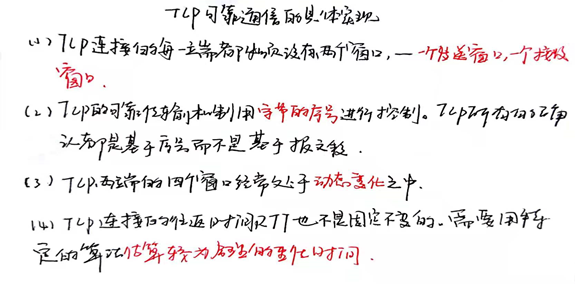 TCP可靠通信的具体实现
(1) TCP连接的每一端都必须设有两个窗口,一一个发送窗口,一个接收
窗口.
(2) TCP的可靠传输机制用字节的序号进行控制。TCP所有的确
认都是基于序号而不是基于报文段.
(3) TCP两端的四个窗口经常处于动态变化之中.
(4) TCP连接的往返时间RTT也不是固定不变的。需要用特
定的算法估算较为合理的变化时间.